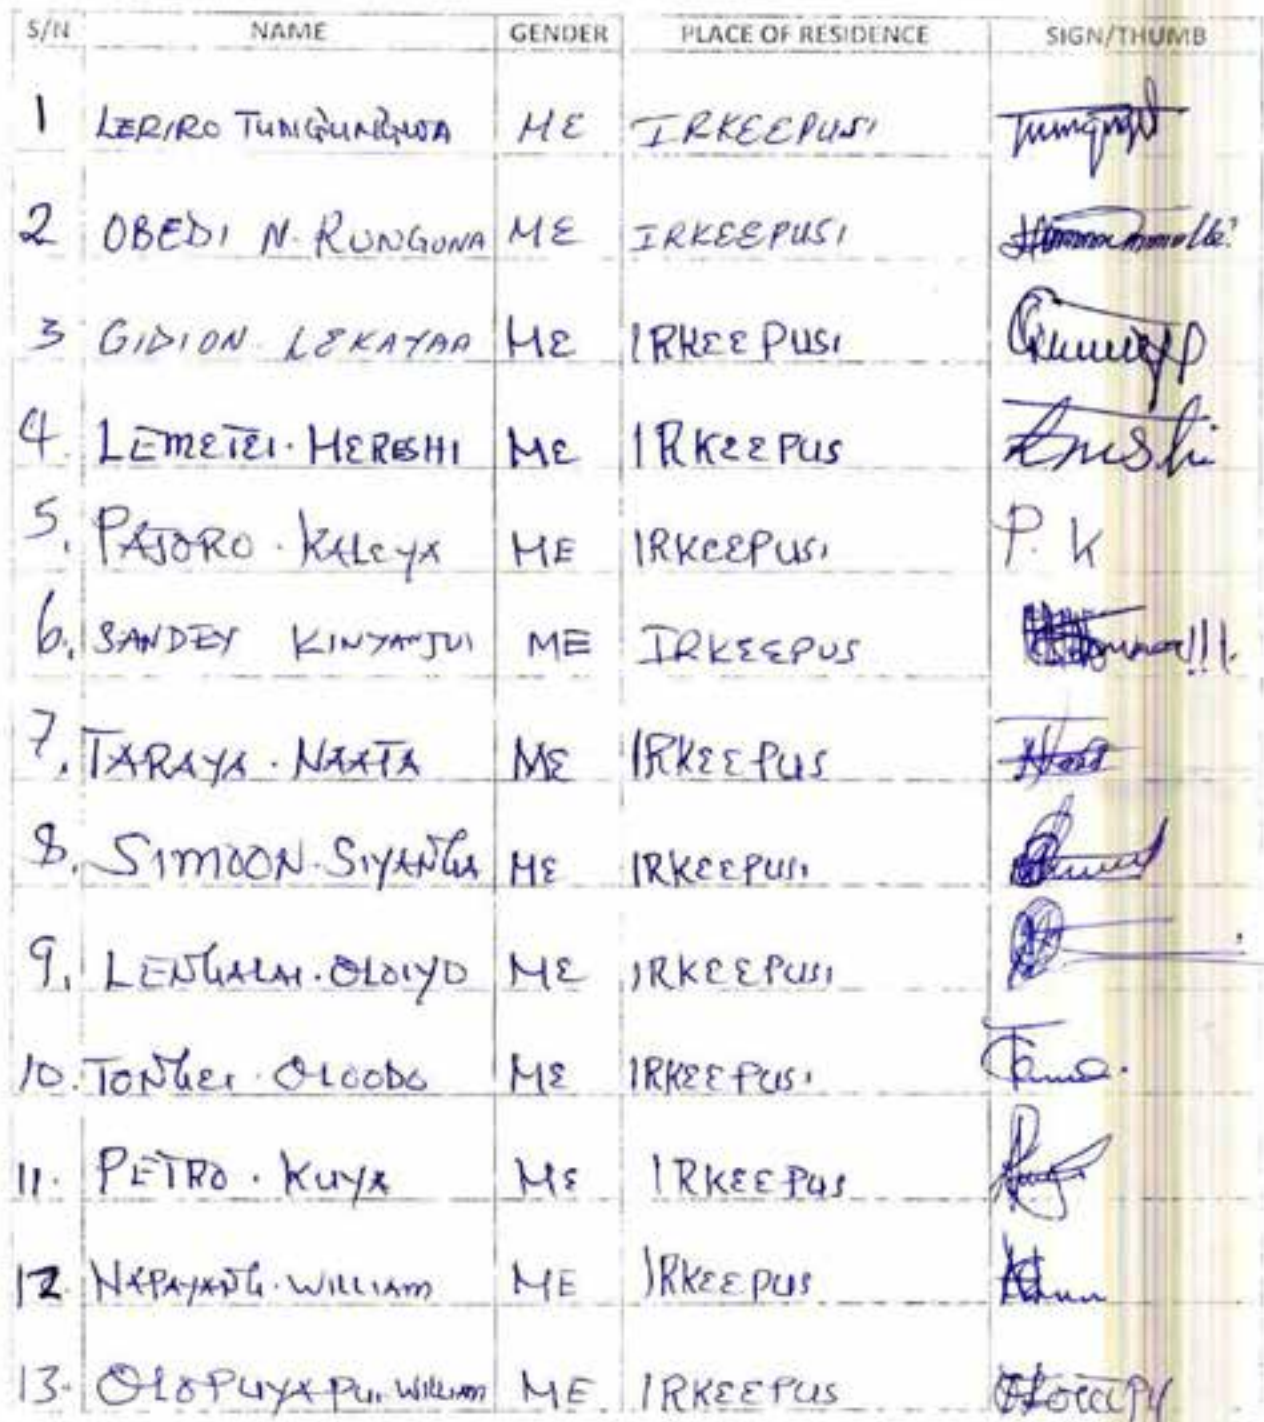 S/N NAME GENDER PLACE OF RESIDENCE SIGN/THUMB
1 LERIRO ME IRKEEPUSI
2 OBEDI N. RUNGUNA ME IRKEEPUSI
3 GIDION LEKAYAA ME IRKEEPUSI
4. LEMETEI. MERESHI ME IRKEEPUS
5. PAJORO. KALEYA ME IRKEEPUSI P. K
6. SANDEY KINYANJUI ME IRKEEPUS
7. TARAYA. NAATA ME IRKEEPUS
8. SIMOON. SIYANGA ME IRKEEPUSI
9. LENGALAI. OLOIYO ME IRKEEPUSI
10. TONGEI. OLOODO ME IRKEEPUSI
11. PETRO. KUYA ME IRKEEPUS
12. NAPAYANG. WILLIAM ME IRKEEPUS
13. OLOPUYAPU. WILLIAM ME IRKEEPUS